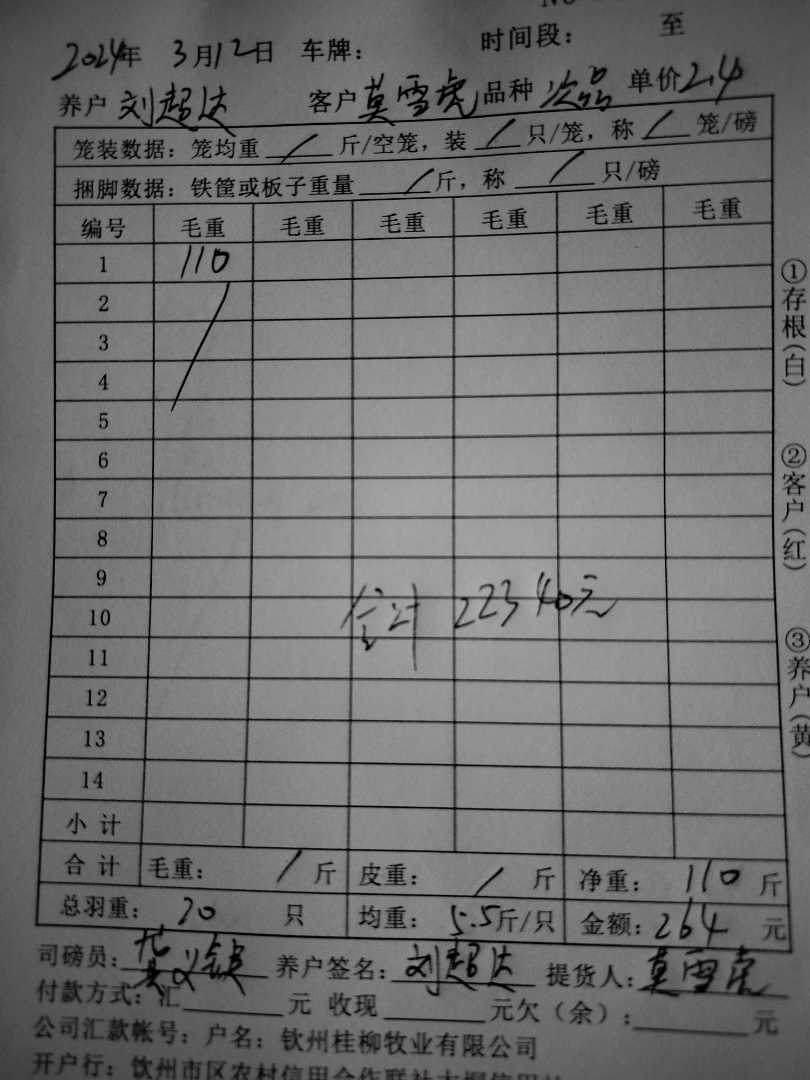 No
2024年 3月12日 车牌： 时间段： 至
养户 刘超达 客户 莫雪虎 品种 次品 单价 2.4
笼装数据：笼均重 / 斤/空笼，装 / 只/笼，称 / 笼/磅
捆脚数据：铁筐或板子重量 / 斤，称 / 只/磅
编号 毛重 毛重 毛重 毛重 毛重 毛重
1 110
2
3
4
5
6
7
8
9
10
合计 22340元
11
12
13
14
小计
合计 毛重： / 斤 皮重： / 斤 净重： 110 斤
总羽重： 20 只 均重： 5.5斤/只 金额：264 元
司磅员： 养户签名：刘超达 提货人：莫雪虎
付款方式：汇 元 收现 元欠（余）： 元
公司汇款帐号：户名：钦州桂柳牧业有限公司
开户行：钦州市区农村信用合作联社
①存根(白)
②客户(红)
③养户(黄)